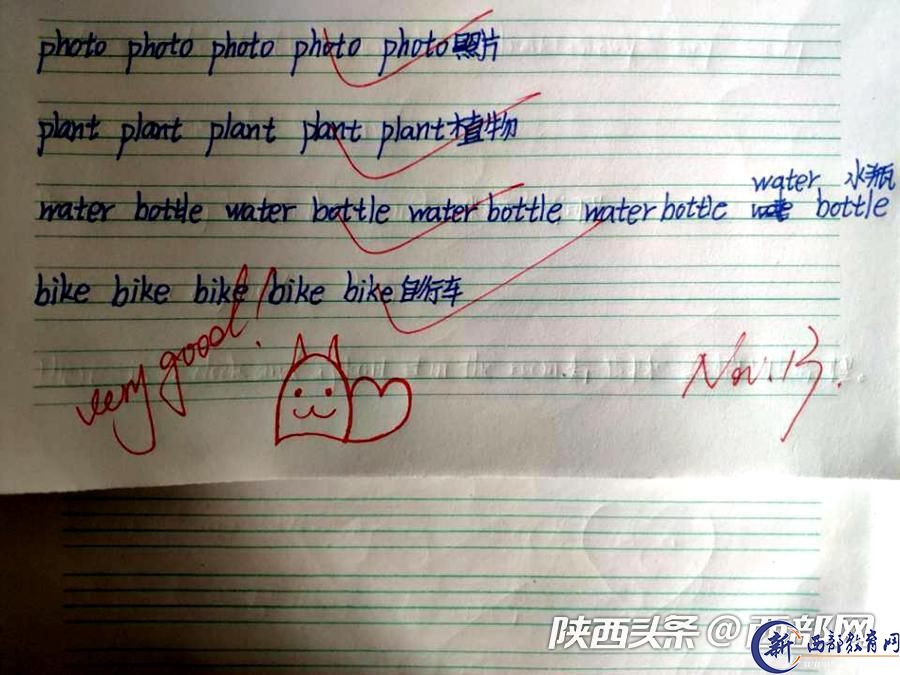 photo photo photo photo photo 照片
plant plant plant plant plant 植物
water 水瓶
water bottle water bottle water bottle water bottle bottle
bike bike bike bike bike 自行车
very good!
Nov.13.
陕西头条 @西部网
新 西部教育网